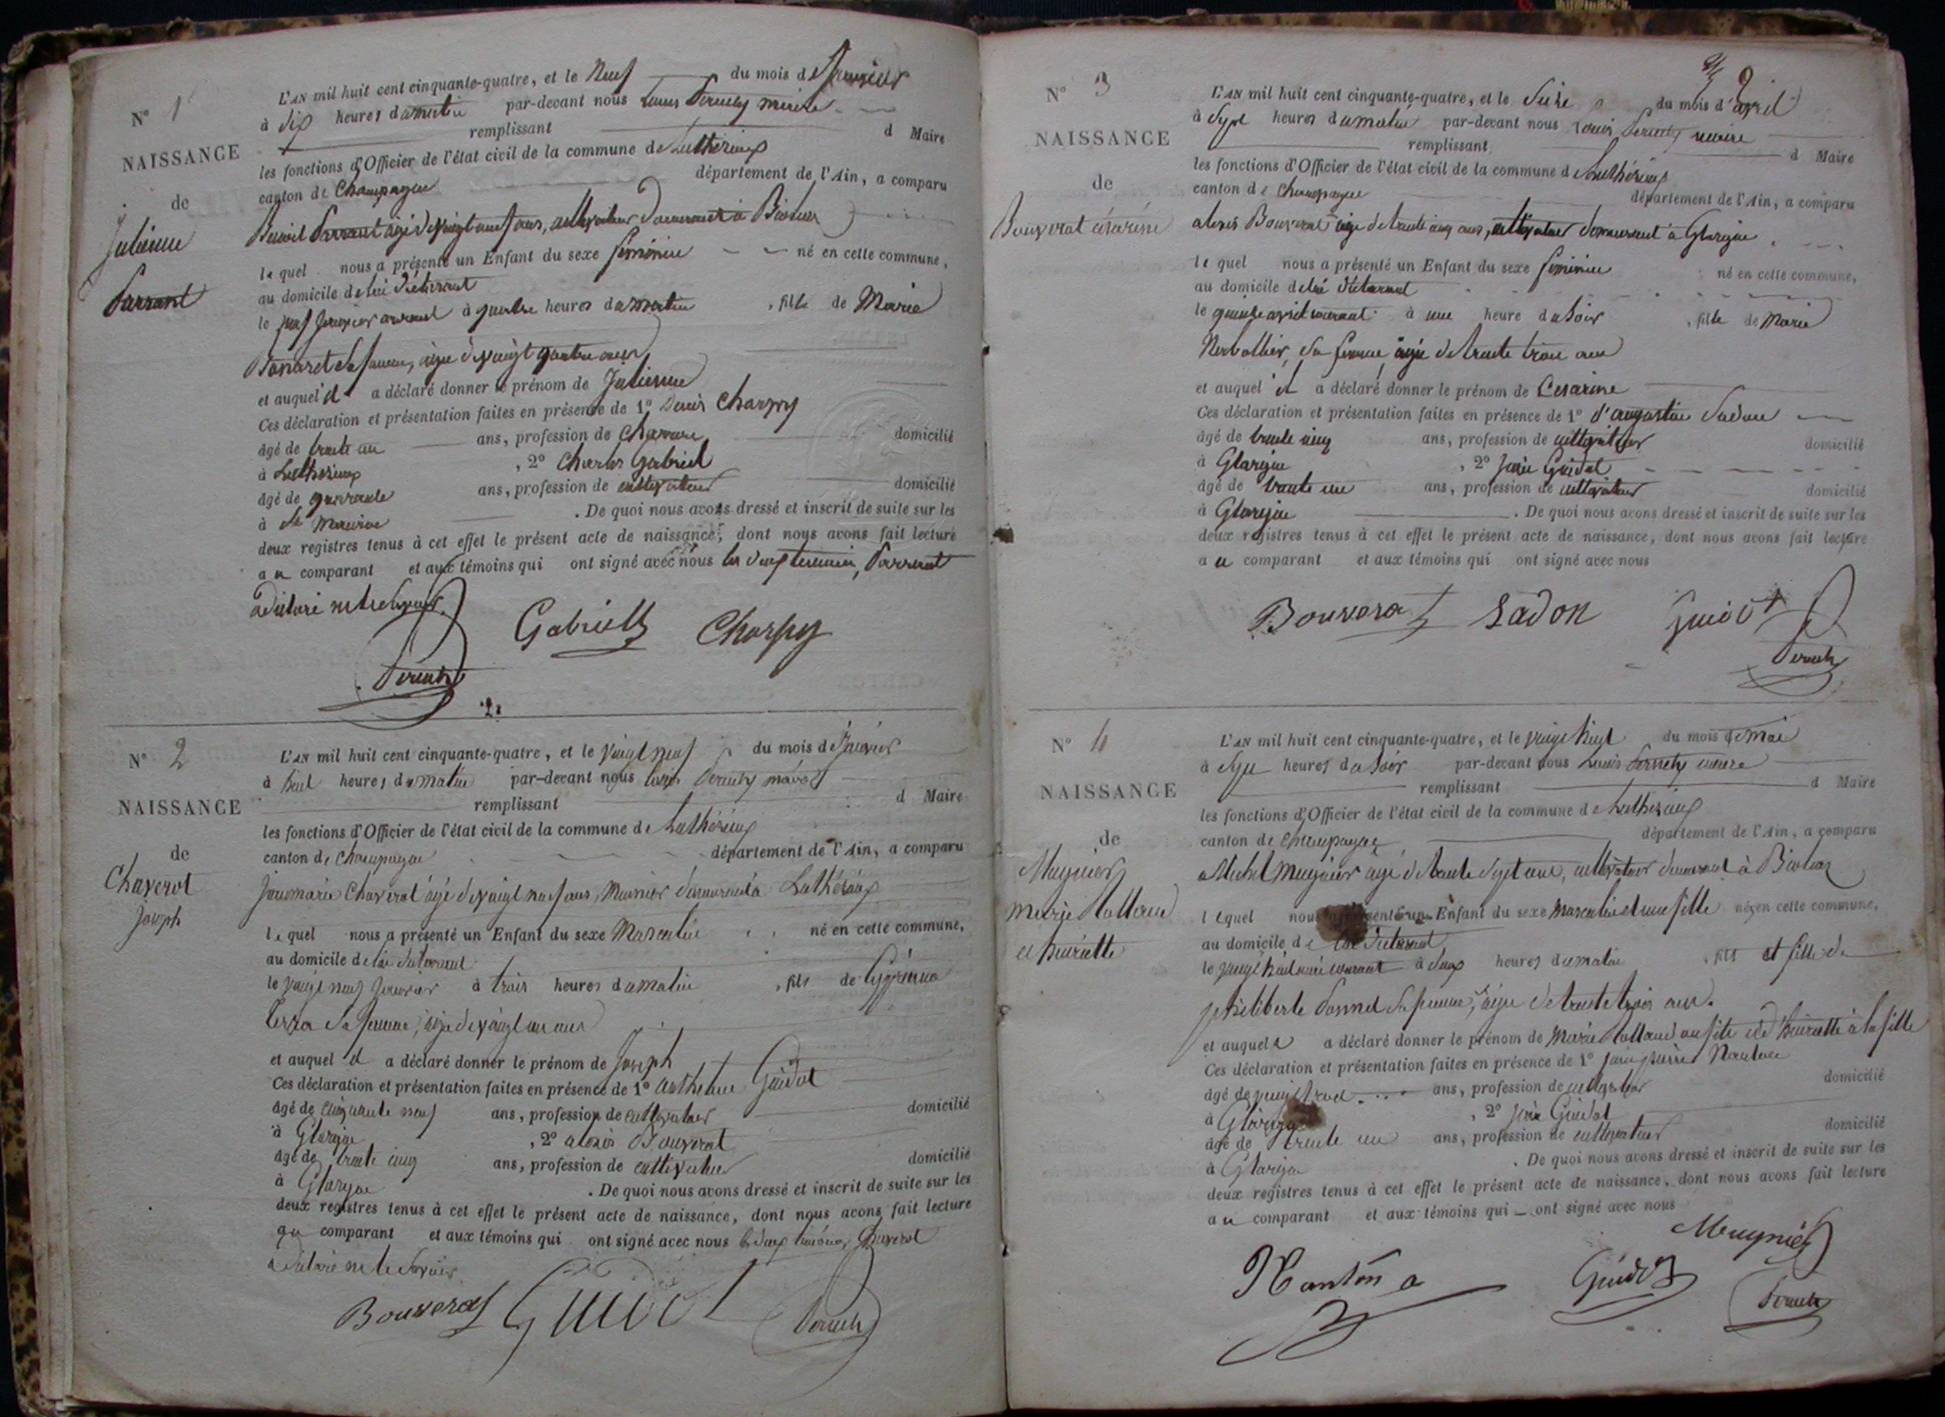 N° 1
NAISSANCE
de
Julienne
Parrant
L'AN mil huit cent cinquante-quatre, et le neuf du mois de Janvier
à dix heures du matin par-devant nous Louis maire
remplissant d Maire
les fonctions d'Officier de l'état civil de la commune de Luthézieux
canton de Champagne département de l'Ain, a comparu
Benoit Parrant agé de vingt neuf ans, cultivateur demeurant à Biolaz
le quel nous a présenté un Enfant du sexe féminin né en cette commune,
au domicile de lui déclarant
le neuf Janvier courant à quatre heures du matin, fille de Marie
sa femme, agée de vingt quatre ans
et auquel il a déclaré donner le prénom de Julienne
Ces déclaration et présentation faites en présence de 1° Denis Charpy
âgé de trente un ans, profession de domicilié
à Luthézieux, 2° Charles Gabriel
âgé de quarante ans, profession de cultivateur domicilié
à St Maurice. De quoi nous avons dressé et inscrit de suite sur les
deux registres tenus à cet effet le présent acte de naissance, dont nous avons fait lecture
au comparant et aux témoins qui ont signé avec nous les deux témoins, Parrant
a déclaré ne le savoir.
Gabriell Charpy
N° 2
NAISSANCE
de
Chaverot
Joseph
L'AN mil huit cent cinquante-quatre, et le vingt neuf du mois de Janvier
à huit heures du matin par-devant nous Louis maire
remplissant d Maire
les fonctions d'Officier de l'état civil de la commune de Luthézieux
canton de Champagne département de l'Ain, a comparu
Jean marie Chaverot agé de vingt neuf ans, Meunier demeurant à Luthézieux
le quel nous a présenté un Enfant du sexe Masculin né en cette commune,
au domicile de lui déclarant
le vingt neuf Janvier à trois heures du matin, fils de
sa femme, agée de vingt un ans
et auquel il a déclaré donner le prénom de Joseph
Ces déclaration et présentation faites en présence de 1° Anthelme Guidot
âgé de cinquante neuf ans, profession de cultivateur domicilié
à Glargin, 2° alexis Bouverat
âgé de trente cinq ans, profession de cultivateur domicilié
à Glargin. De quoi nous avons dressé et inscrit de suite sur les
deux registres tenus à cet effet le présent acte de naissance, dont nous avons fait lecture
au comparant et aux témoins qui ont signé avec nous les deux témoins, Chaverot
a déclaré ne le savoir
Bouverat Guidot
2
N° 3
NAISSANCE
de
Bouverat césarine
L'AN mil huit cent cinquante-quatre, et le Seize du mois d'avril
à Sept heures du matin par-devant nous Louis maire
remplissant d Maire
les fonctions d'Officier de l'état civil de la commune de Luthézieux
canton de Champagne département de l'Ain, a comparu
alexis Bouverat agé de trente cinq ans, cultivateur demeurant à Glargin
le quel nous a présenté un Enfant du sexe féminin né en cette commune,
au domicile de lui déclarant
le quinze avril courant à une heure du soir, fille de Marie
sa femme agée de trente trois ans
et auquel il a déclaré donner le prénom de Césarine
Ces déclaration et présentation faites en présence de 1° d'augustin Sadon
âgé de trente cinq ans, profession de cultivateur domicilié
à Glargin, 2° Guidot
âgé de trente un ans, profession de cultivateur domicilié
à Glargin. De quoi nous avons dressé et inscrit de suite sur les
deux registres tenus à cet effet le présent acte de naissance, dont nous avons fait lecture
au comparant et aux témoins qui ont signé avec nous
Bouverat Sadon Guidot
N° 4
NAISSANCE
de
Mugnier
marie
et henriette
L'AN mil huit cent cinquante-quatre, et le vingt huit du mois de mai
à Sept heures du soir par-devant nous Louis maire
remplissant d Maire
les fonctions d'Officier de l'état civil de la commune de Luthézieux
canton de Champagne département de l'Ain, a comparu
Michel Mugnier agé de trente Sept ans, cultivateur demeurant à Biolaz
le quel nous a présenté un Enfant du sexe masculin et une fille nés en cette commune,
au domicile de lui déclarant
le vingt huit mai courant à deux heures du matin, fils et fille de
philiberte sa femme, agée de trente trois ans.
et auquel a déclaré donner le prénom de Marie au fils et d'henriette à la fille
Ces déclaration et présentation faites en présence de 1° Jean pierre
âgé de ans, profession de cultivateur domicilié
à Glargin, 2° Guidot
âgé de trente un ans, profession de cultivateur domicilié
à Glargin. De quoi nous avons dressé et inscrit de suite sur les
deux registres tenus à cet effet le présent acte de naissance, dont nous avons fait lecture
au comparant et aux témoins qui ont signé avec nous
Mugnier
Guidot